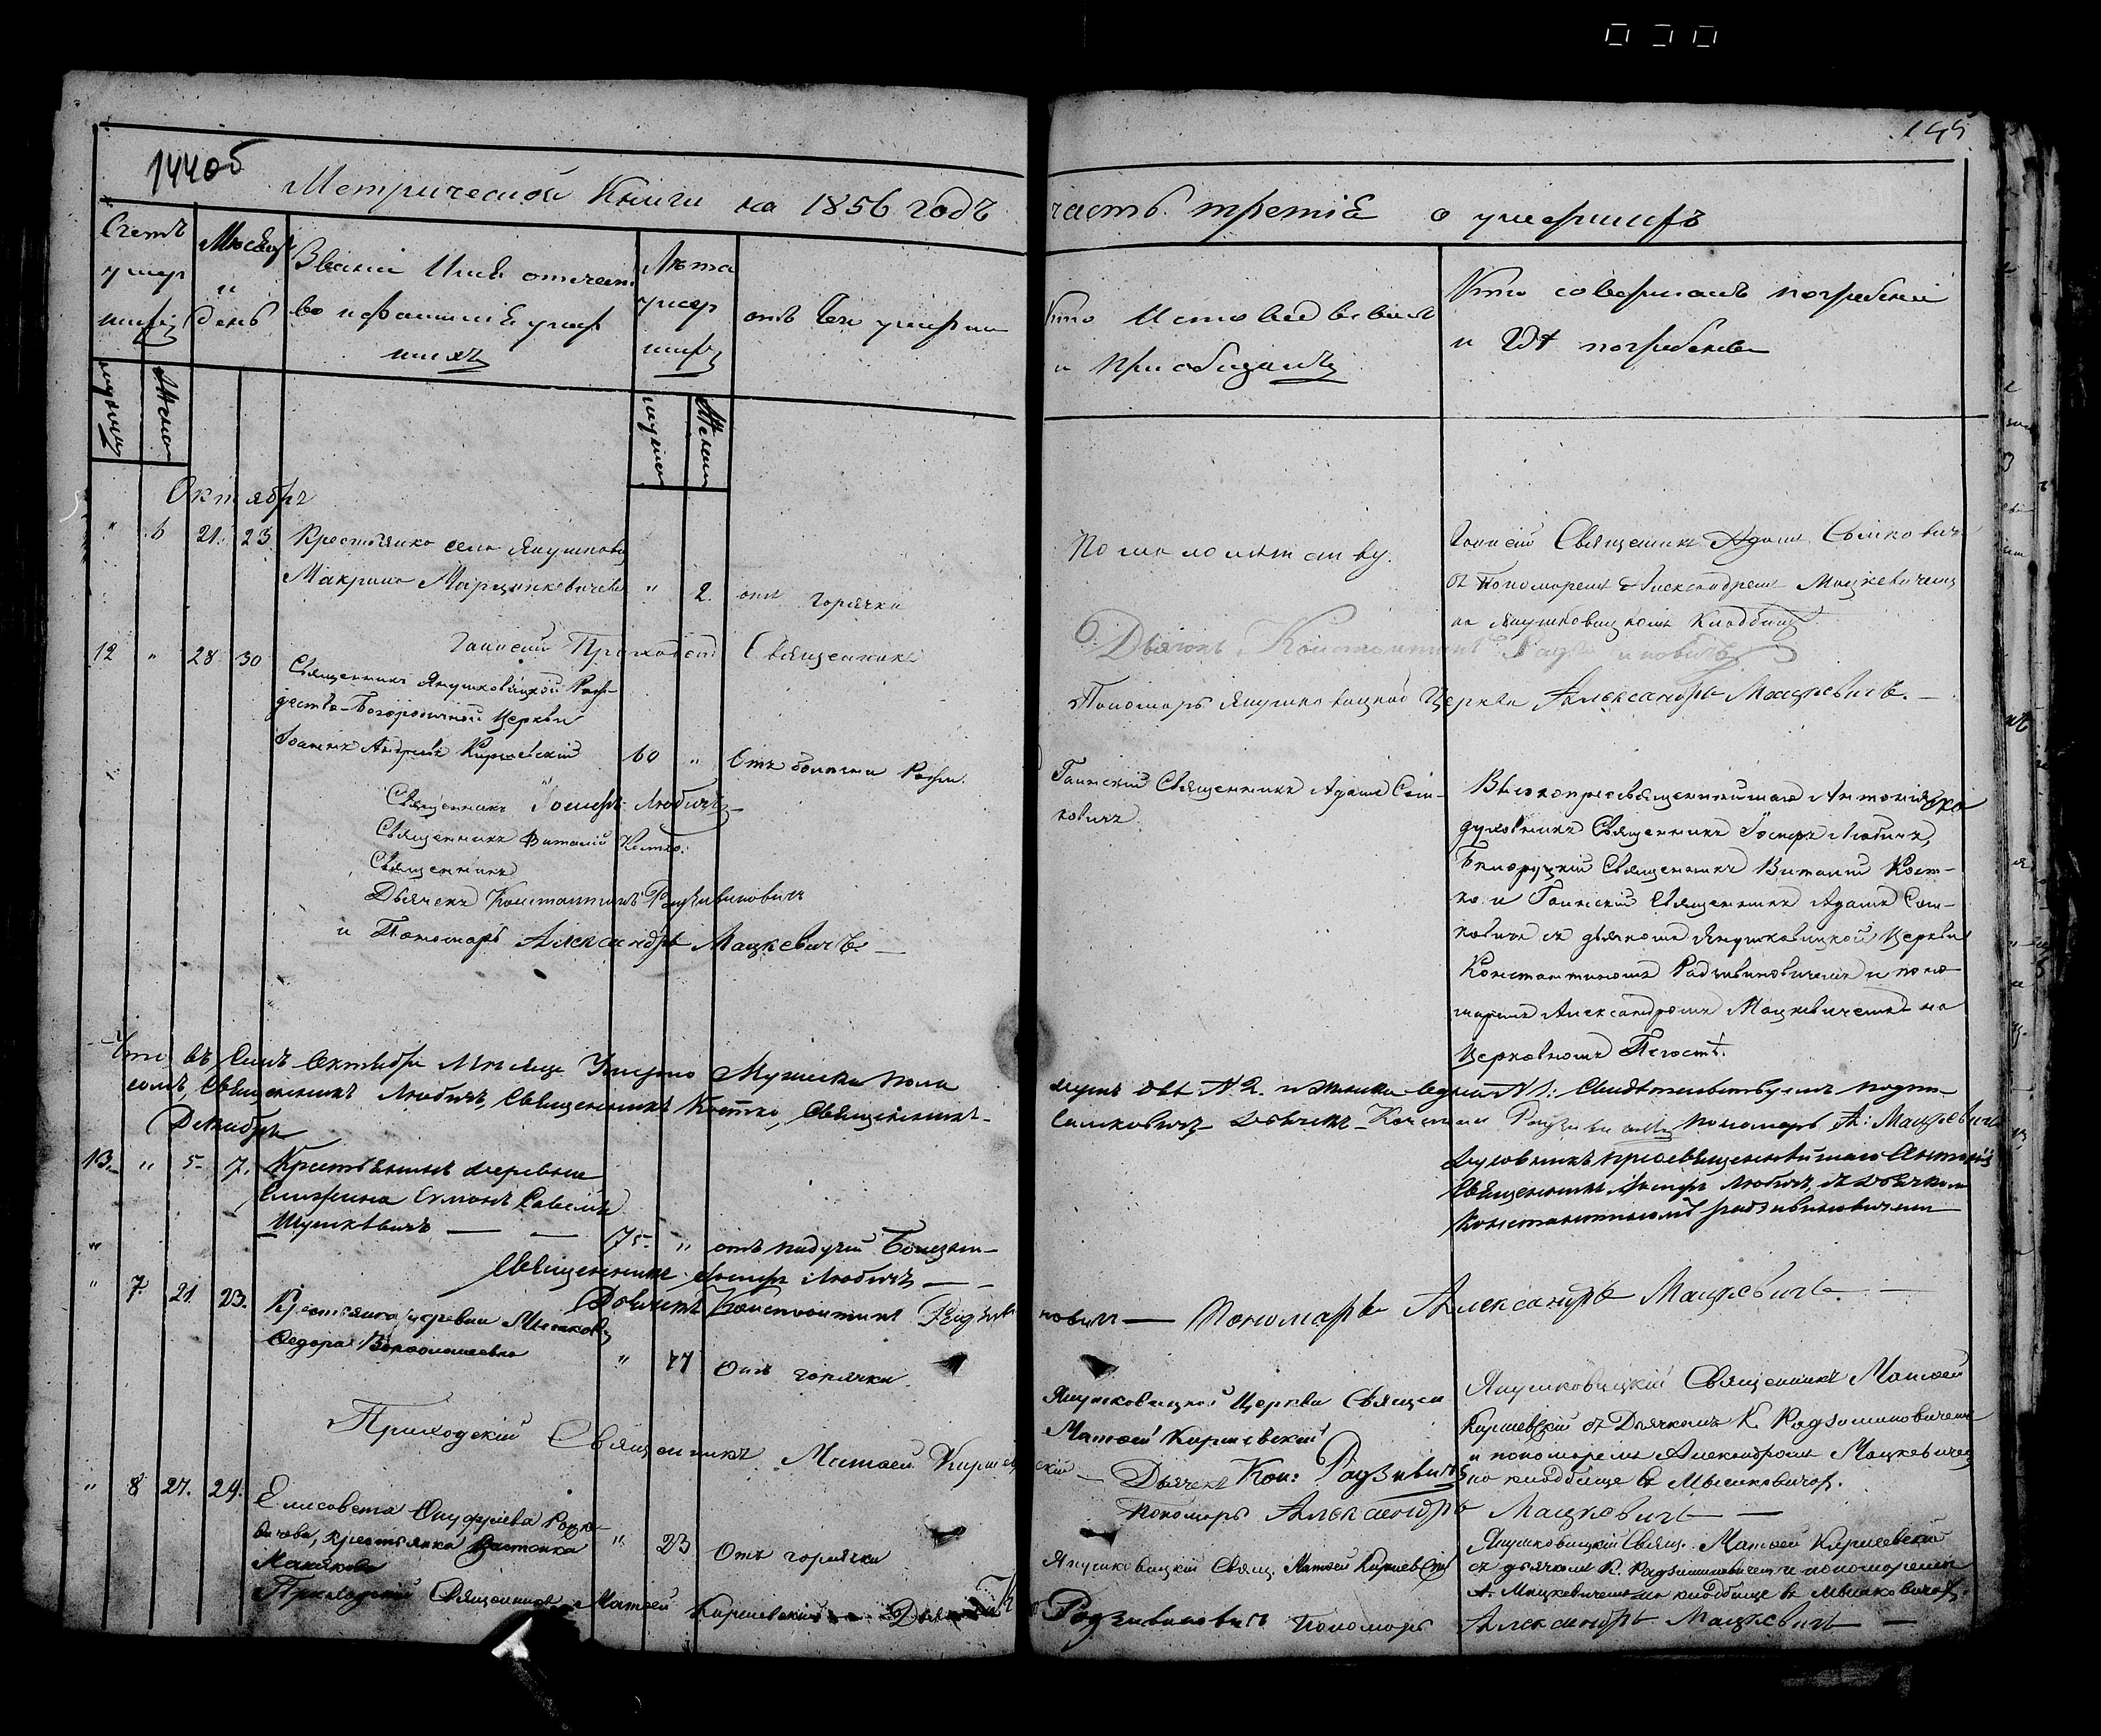 144об
145
Метрической Книги на 1856 годъ часть третія о умершихъ
Счетъ умер шихъ
Мѣсяцъ и день
Званіе Имя отчест
во и фамилія умер
шихъ
Лѣта умер шихъ
отъ чего умерли
Кто Исповѣдывалъ
и Пріобщалъ
Кто совершалъ погребеніе
и Гдѣ погребены
мужска
Женска
мужска
Женска
Октябрь
" 6 21. 23 Крестьянка села Янушкович
Макрина Марцинкевичева " 2. отъ горячки
По малолѣтству.
Гаинскій Священникъ Адамъ Самковичъ
съ Пономаремъ Александромъ Мацкевичемъ
на Янушковицкомъ Кладбищѣ
Гаинскій Священникъ
Дьячокъ Константинъ
Пономарь Янушковицкой Церкви Александръ Мацкевичъ.
12 " 28 30 Священникъ Янушковицкой Рож-
дество-Богородичной Церкви
Іоаннъ Андреевъ Киршевскій 60 " Отъ
Гаинскій Священникъ Адамъ Сам-
ковичъ
Высокопреосвященнѣйшаго Антонія
духовникъ Священникъ Іосифъ Любичъ,
Бѣлоруцкій Священникъ Виталій Кост-
ко и Гаинскій Священникъ Адамъ Сам-
ковичъ съ дьячкомъ Янушковицкой Церкви
Константиномъ Радзивиновичемъ и поно-
маремъ Александромъ Мацкевичемъ на
Церковномъ Погостѣ.
Священникъ Іосифъ Любичъ
Священникъ Виталій Костко.
Священникъ
Дьячекъ Константинъ Радзивиновичъ
и Пономарь Александръ Мацкевичъ.
Что въ семъ Октябрѣ Мѣсяцѣ Умерло Мужеска пола двѣ № 2. и женска одна № 1: Свидѣтельствуемъ подпи-
сомъ, Священникъ Любичъ, Священникъ Костко, Священникъ Самковичъ Дьячекъ Пономарь А: Мацкевичъ
Декабрь
13. " 5. 7. Крестьянинъ деревни
Симонъ
Шушкевичъ 75. " отъ падучій Болезни
Духовникъ преосвященнѣйшаго Антонія
Священникъ Іосифъ Любичъ съ Дьячкомъ
Константиномъ Радзивиновичемъ
Священникъ Іосифъ Любичъ
Дьячекъ Константинъ Радзивиновичъ Пономарь Александръ Мацкевичъ.
" 7. 21 23. Крестьянка деревни
Ѳедора Варѳоломеева " 77 Отъ горячки
Янушковицкой Церкви Священ
Матѳей Киршевскій
Янушковицкій Священникъ Матѳей
Киршевскій съ Дьячкомъ К. Радзивиновичемъ
и пономаремъ Александромъ Мацкевичемъ
на кладбище въ Мышковичахъ.
Приходскій Священникъ Матѳей Киршевскій Дьячекъ Кон: Радзивинъ
Пономарь Александръ Мацкевичъ
" 8 27. 29. Елисавета Онуфріева
крестьянка застенка " 23 Отъ горячки
Янушковицкій Свящ. Матѳей Киршевскій
Янушковицкій Свящ. Матѳей Киршевскій
съ дьячкомъ К. Радзивиновичемъ и пономаремъ
А. Мацкевичемъ на кладбище въ Мышковичахъ.
Приходскій Священникъ Матѳей Киршевскій Дьячекъ К Радзивиновичъ Пономарь Александръ Мацкевичъ